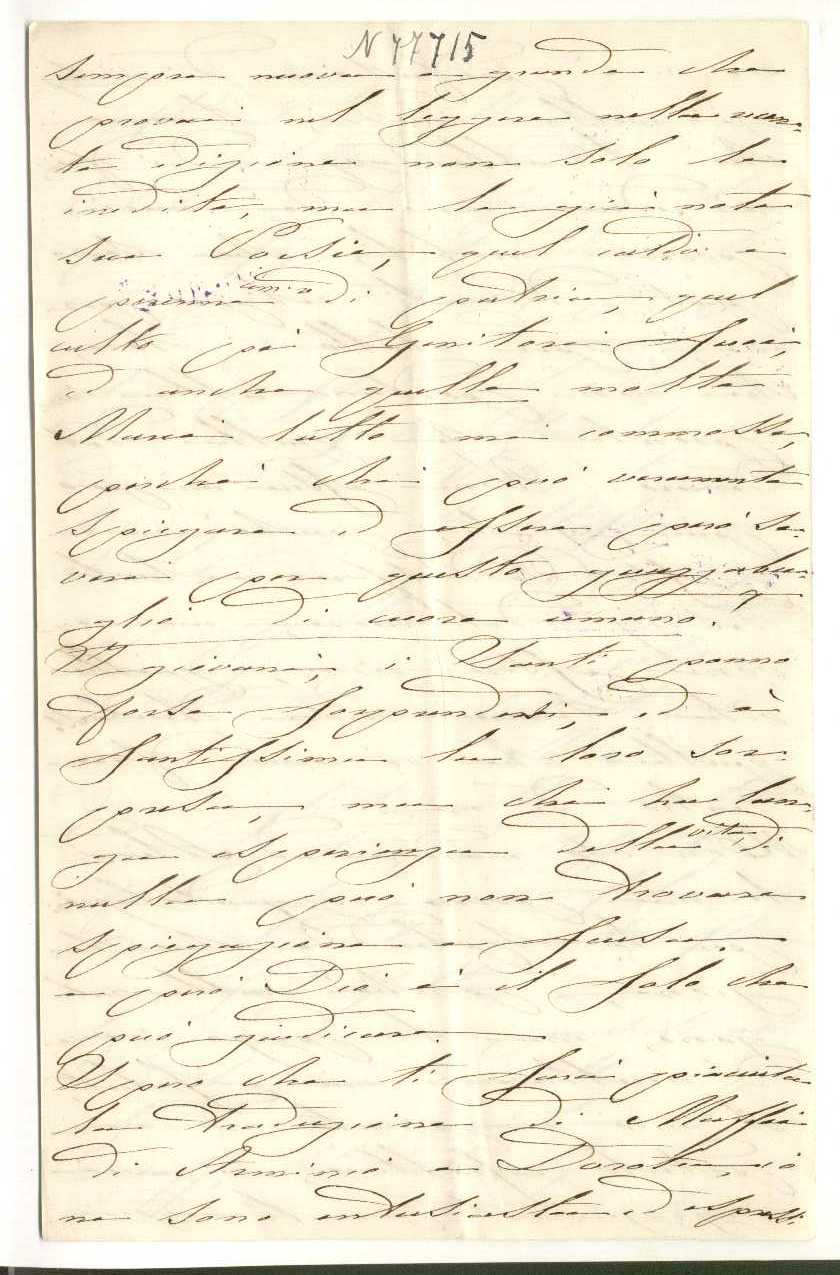 N 77715
sempre nuova e grande che
provai nel leggere nella recen-
te edizione non solo le
inedite, ma le già note
sue Poesie, quel caldo e
perenne amor di patria, quel
culto pei Genitori Suoi,
ed anche quella molta
Musa tutto mi commosse,
perchè chi può veramente
spiegare ed essere però se-
vero per questo guazzabu-
glio di cuore umano.
I giovani, i Santi ponno
forse sorprendersi, ed è
Santissima la loro sor-
presa, ma chi ha lun-
ga esperienza della vita, di
nulla può non trovare
spiegazione e scusa
e però Dio è il solo che
può giudicare.
Spero che ti sarà piaciuta
la traduzione di Maffei
di Arminio e Dorotea, io
ne sono entusiasta ed espressi